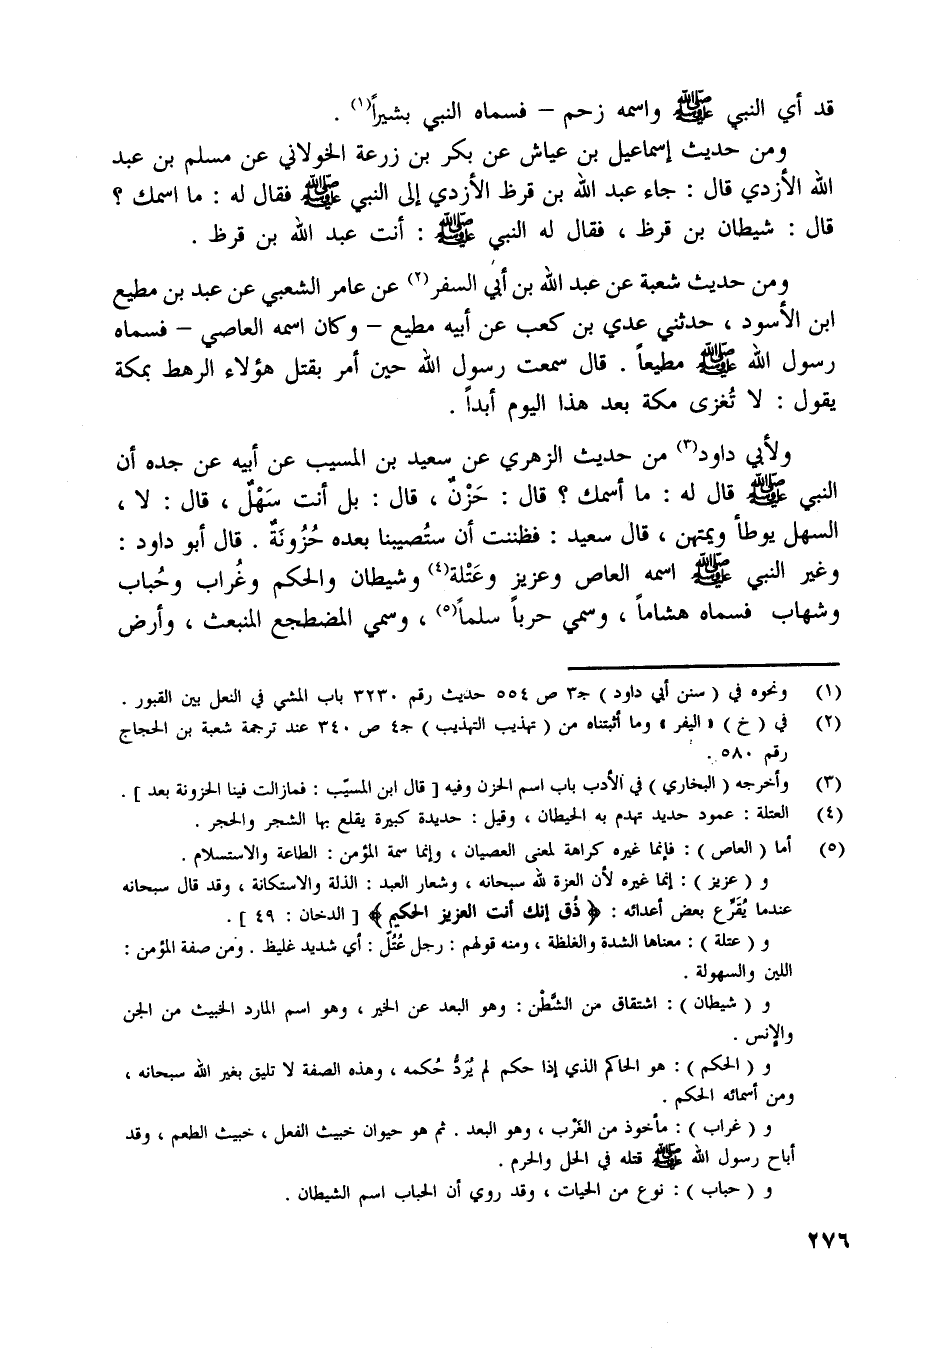 قد أي النبي ﷺ واسمه زحم – فسماه النبي بشيراً(١) .
ومن حديث إسماعيل بن عياش عن بكر بن زرعة الخولاني عن مسلم بن عبد
الله الأزدي قال : جاء عبد الله بن قرظ الأزدي إلى النبي ﷺ فقال له : ما اسمك ؟
قال : شيطان بن قرظ ، فقال له النبي ﷺ : أنت عبد الله بن قرظ .
ومن حديث شعبة عن عبد الله بن أبي السفر(٢) عن عامر الشعبي عن عبد بن مطيع
ابن الأسود ، حدثني عدي بن كعب عن أبيه مطيع – وكان اسمه العاصي – فسماه
رسول الله ﷺ مطيعاً . قال سمعت رسول الله حين أمر بقتل هؤلاء الرهط بمكة
يقول : لا تُغزى مكة بعد هذا اليوم أبداً .
ولأبي داود(٣) من حديث الزهري عن سعيد بن المسيب عن أبيه عن جده أن
النبي ﷺ قال له : ما أسمك ؟ قال : حَزْنٌ ، قال : بل أنت سَهْلٌ ، قال : لا ،
السهل يوطأ ويمتهن ، قال سعيد : فظننت أن ستُصيبنا بعده حُزُونَةٌ . قال أبو داود :
وغير النبي ﷺ اسمه العاص وعزيز وعَتْلة(٤) وشيطان والحكم وغُراب وحُباب
وشهاب فسماه هشاماً ، وسمي حرباً سلماً(٥) ، وسمي المضطجع المنبعث ، وأرض
(١) ونحوه في ( سنن أبي داود ) جـ٣ ص ٥٥٤ حديث رقم ٣٢٣٠ باب المشي في النعل بين القبور .
(٢) في ( خ ) « اليفر » وما أثبتناه من ( تهذيب التهذيب ) جـ٤ ص ٣٤٠ عند ترجمة شعبة بن الحجاج
رقم ٥٨٠ .
(٣) وأخرجه ( البخاري ) في الأدب باب اسم الحزن وفيه [ قال ابن المسيّب : فمازالت فينا الحزونة بعد ] .
(٤) العتلة : عمود حديد تهدم به الحيطان ، وقيل : حديدة كبيرة يقلع بها الشجر والحجر .
(٥) أما ( العاص ) : فإنما غيره كراهة لمعنى العصيان ، وإنما سمة المؤمن : الطاعة والاستسلام .
و ( عزيز ) : إنما غيره لأن العزة لله سبحانه ، وشعار العبد : الذلة والاستكانة ، وقد قال سبحانه
عندما يُقَرِّع بعض أعدائه : ﴿ ذُق إنك أنت العزيز الحكيم ﴾ [ الدخان : ٤٩ ] .
و ( عتلة ) : معناها الشدة والغلظة ، ومنه قولهم : رجل عُتُلّ : أي شديد غليظ . ومن صفة المؤمن :
اللين والسهولة .
و ( شيطان ) : اشتقاق من الشَّطْن : وهو البعد عن الخير ، وهو اسم المارد الخبيث من الجن
والإنس .
و ( الحكم ) : هو الحاكم الذي إذا حكم لم يُرَدُّ حُكمه ، وهذه الصفة لا تليق بغير الله سبحانه ،
ومن أسمائه الحكم .
و ( غراب ) : مأخوذ من الغَرْب ، وهو البعد . ثم هو حيوان خبيث الفعل ، خبيث الطعم ، وقد
أباح رسول الله ﷺ قتله في الحل والحرم .
و ( حباب ) : نوع من الحيات ، وقد روي أن الحباب اسم الشيطان .
٢٧٦